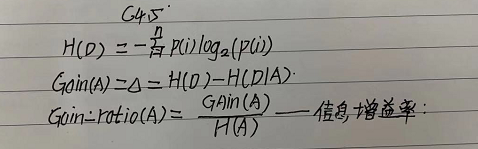 C4.5
H(D) = -∑ⁿᵢ₌₁ P(i)log₂(P(i))
Gain(A)=Δ= H(D)-H(D|A).
Gain-ratio(A)= GAin(A)/H(A) — 信息增益率: